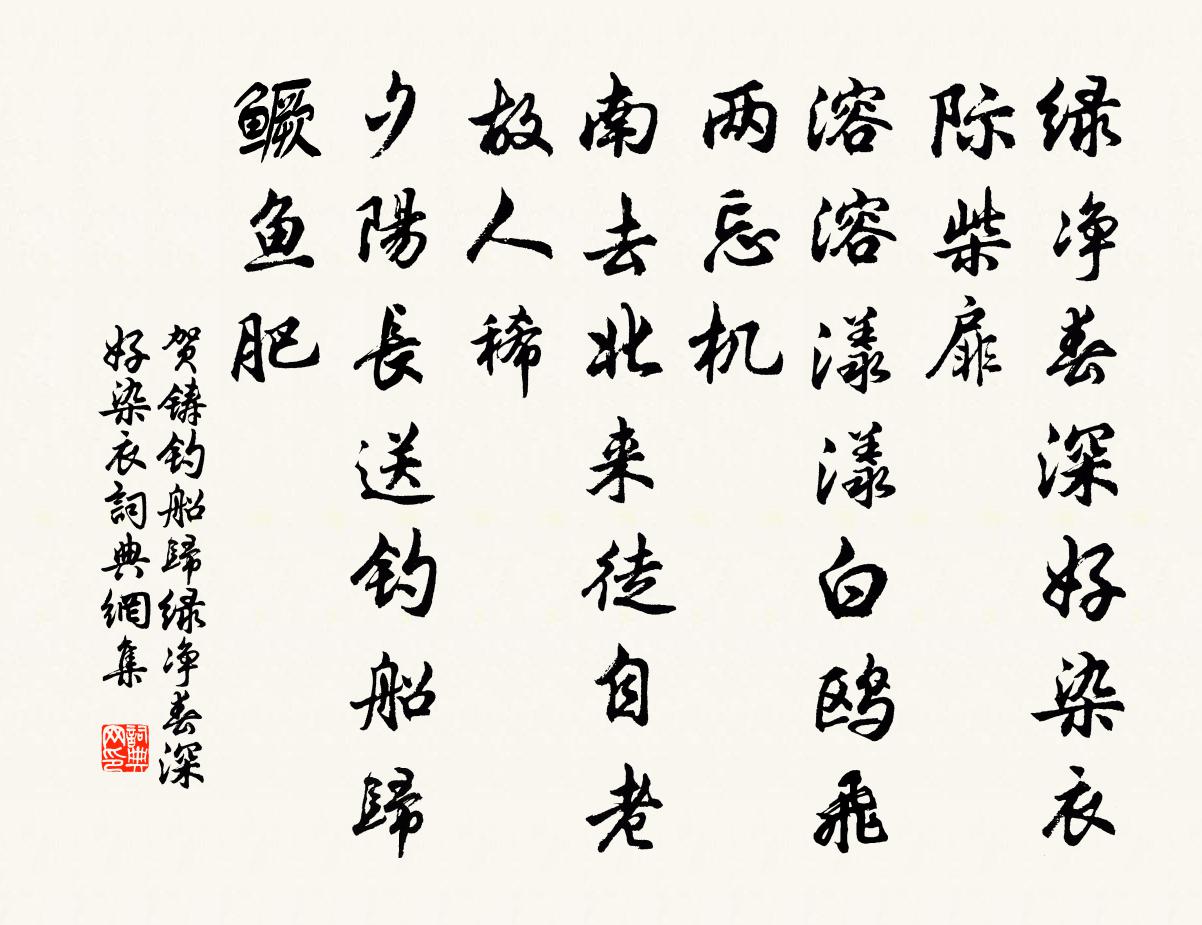 绿净春深好染衣
际柴扉
溶溶漾漾白鸥飛
两忘机
南去北来徒自老
故人稀
夕陽長送钓船歸
鳜鱼肥
贺鋳钓船歸绿净春深
好染衣詞典網集
詞典网印